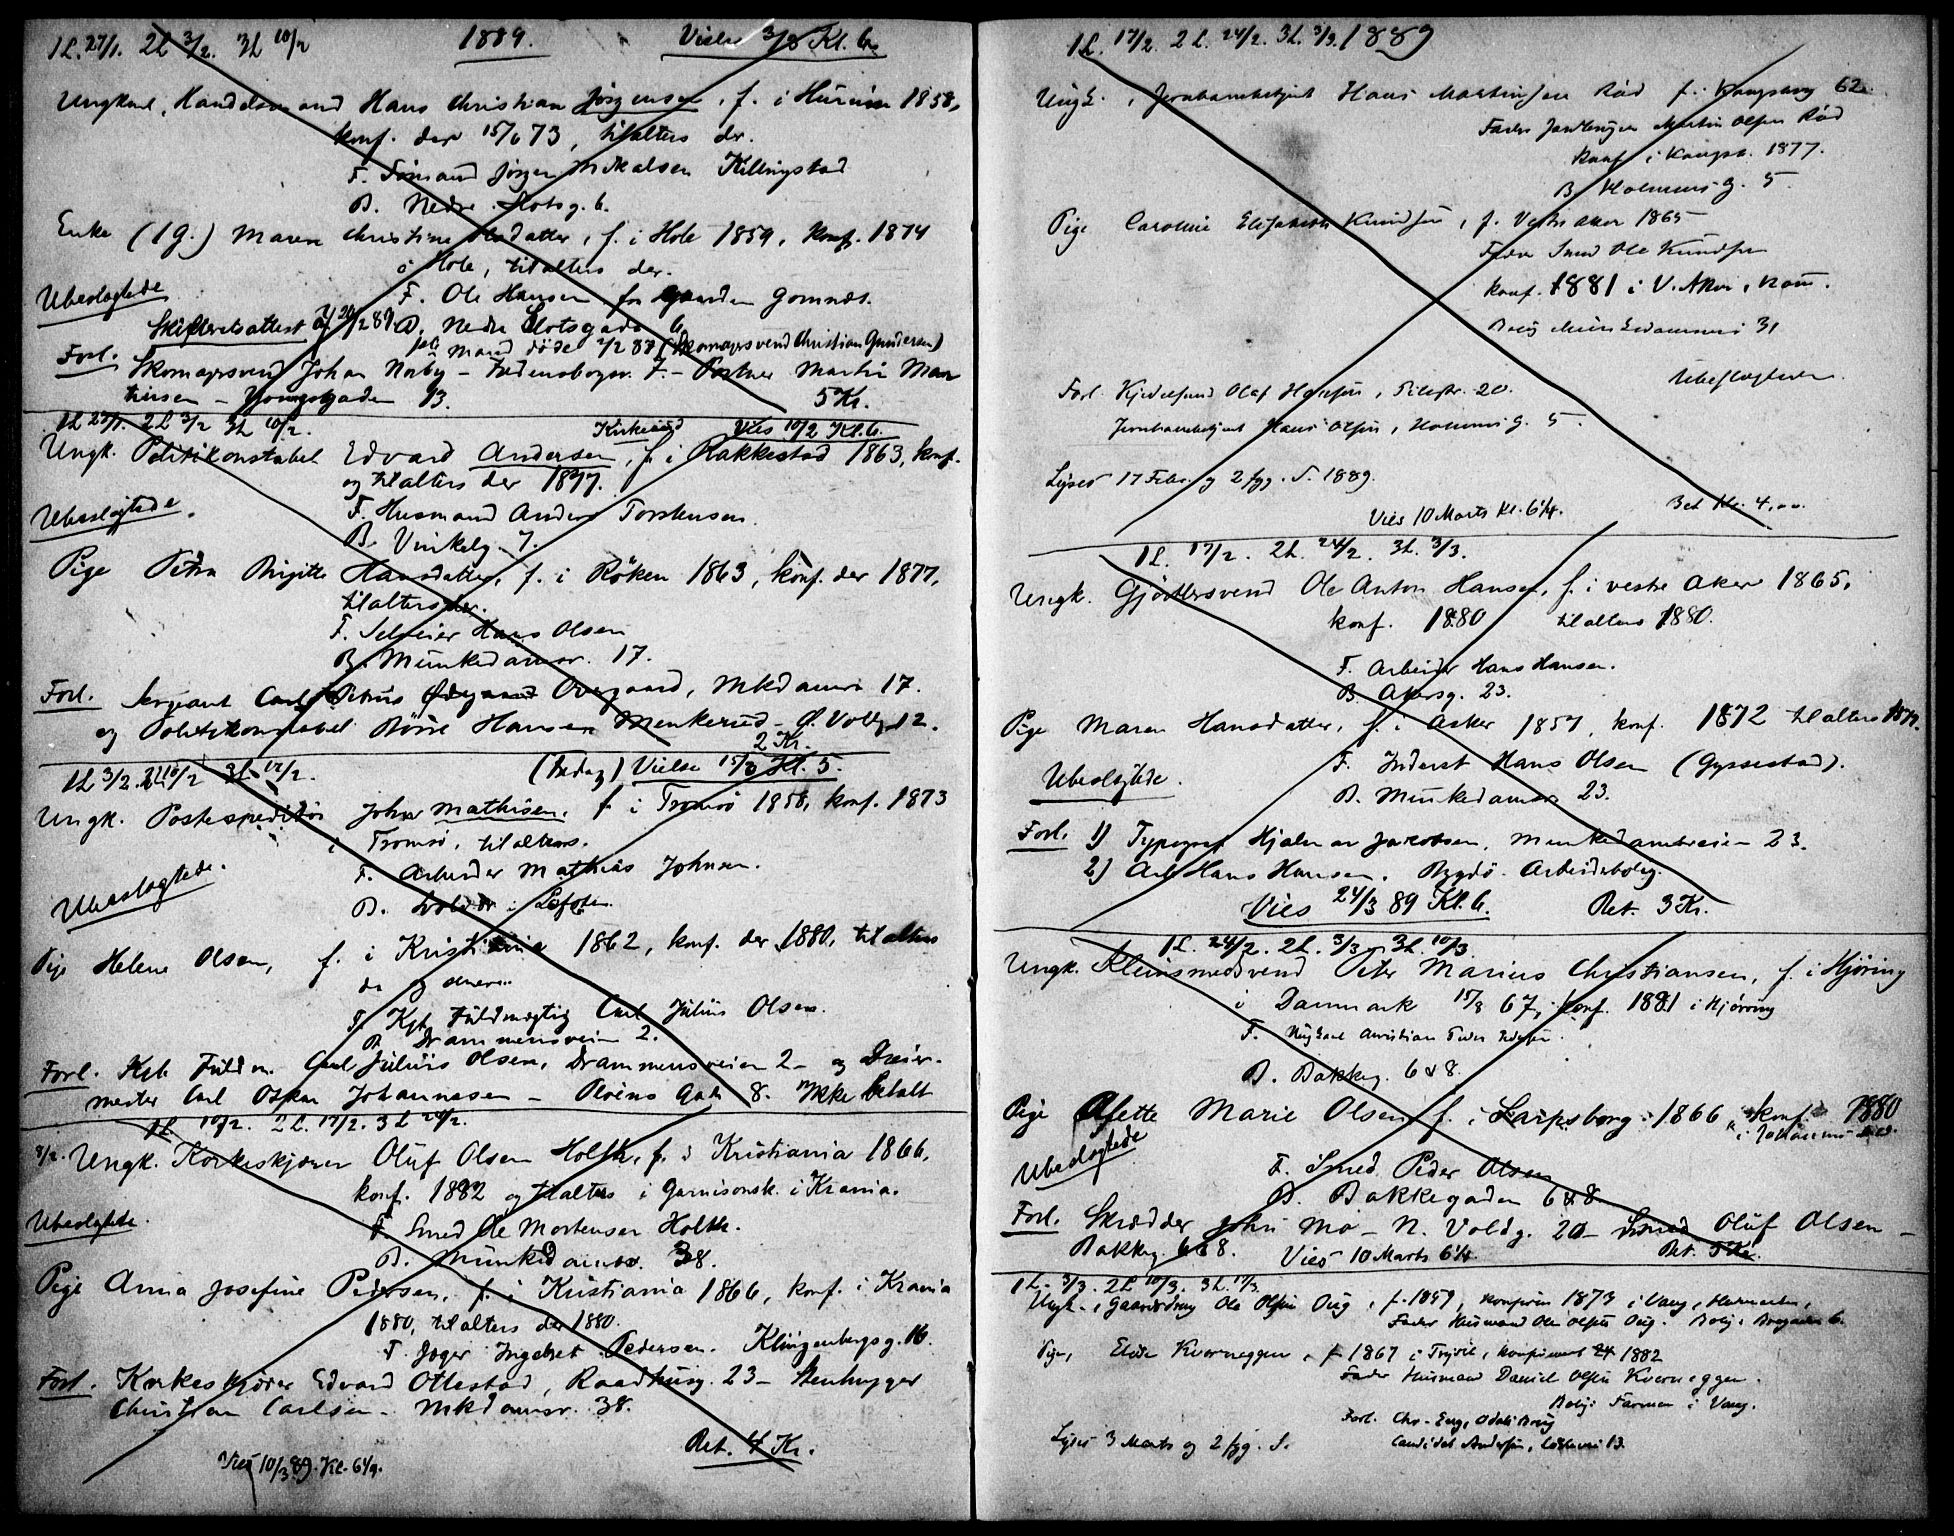 1 L. 27/1. 2 L 3/2. 3 L 10/2 1889. Vielse 3/3 Kl. 6.
Ungkarl, Handelsmand Hans Christian Jørgensen, f. i Hurum 1858,
konf. der 15/6 73, tilalters der.
F. Jørgen Mikalsen Killingstad
B. Nedre Slotsg. 6.
Enke (1 g.) Maren Christine Olsdatter, f. i Hole 1859, konf. 1874
i Hole, tilalters der.
Ubeslægtede F. Ole Hansen, gaarden Gomnæs.
Skifteretsattest B. Nedre Slotsgade 6.
Mand døde (Skomagersvend Christian Gundersen)
Forl. Skomagersvend Johan Norby – F. – Portner Martin Mar
tinsen – Youngsgaden 13. 5 Kr.
1 L 27/1. 2 L 3/2 3 L 10/2. Vies 10/2 Kl. 6.
Ungk. Politikonstabel Edvard Andersen, f. i Rakkestad 1863, konf.
og tilalters der 1877.
Ubeslægtede. F. Husmand Anders Torstensen.
B. Vinkelg. 7.
Pige Petra Birgitte Hansdatter, f. i Röken 1863, konf. der 1877,
tilalters der.
F. Selveier Hans Olsen
B. Munkedamsv. 17.
Forl. Sergeant Carl Petrus Overgaard, Mkdamsv 17.
og Politikonstabel Hansen Menkerud – Ø. Voldg. 12.
2 Kr.
1 L 3/2. 2 L 10/2 3 L 17/2. (Fredag) Vielse 15/3 Kl. 5.
Ungk. Postexpeditör Johan Mathisen, f. i Tromsö 1858, konf. 1873
i Tromsö, tilalters.
F. Arbeider Mathias Johnsen.
Ubeslægtede. B. i Lofoten.
Pige Helene Olsen, f. i Kristiania 1862, konf. der 1880, tilalters
der og
F. Kgl. Fuldmægtig Carl Julius Olsen.
B. Drammensveien 2.
Forl. Kgl. Fuldm. Carl Julius Olsen, Drammensveien 2 – og Dreier-
mester Carl Oskar Johannesen – Pløens Gade 8. Ikke betalt
1 L. 10/2. 2 L. 17/2. 3 L 24/2.
Ungk. Korkeskjærer Oluf Olsen Holth, f. i Kristiania 1866,
konf. 1882 og tilalters i Garnisonsk. i Krania.
Ubeslægtede. F. Smed Ole Mortensen Holth.
B. Munkedamsv. 38.
Pige Anna Josefine Pedersen, f. i Kristiania 1866, konf. i Krania
1880, tilalters der 1880.
F. Jæger Ingebret Pedersen. Klingenbergsg. 16.
Forl. Korkeskjærer Edvard Ottestad, Raadhusg. 23 – Stenhugger
Christian Carlsen – Mkdamsv. 38.
Bet. 4 Kr.
Vies 10/3 89. Kl. 6 1/4.
1 L. 17/2. 2 L. 24/2. 3 L. 3/3. 1889
Ungk., Jernbanebetjent Hans Martinsen Rød f. Kongsberg 62.
Fader Martin Olsen Rød
Konf. i Kongsb. 1877.
B. Holmens g. 5.
Pige Caroline Elisabeth Knudsen, f. Vestre Aker 1865
Fader Smed Ole Knudsen
konf. 1881 i V. Aker,
Bolig Munkedamsv. 31
Ubeslægtede.
Forl. Olaf Hansen, Pilestr. 20.
Jernbanebetjent Hans Olsen, Holmens g. 5.
Lyses 17 Febr. og 2 flg. S. 1889.
Vies 10 Marts Kl. 6 1/4. Bet. Kr. 4,00.
1 L. 17/2. 2 L. 24/2. 3 L. 3/3.
Ungk. Gjörtlersvend Ole Anton Hansen, f. i vestre Aker 1865,
konf. 1880 tilalters 1880.
F. Arbeider Hans Hansen.
B. Akersg. 23.
Pige Maren Hansdatter, f. i Asker 1857, konf. 1872 tilalters
F. Inderst Hans Olsen (Gyssestad).
Ubeslægtede. B. Munkedamsv 23.
Forl. 1) Typograf Hjalmar Jakobsen, Munkedamsveien 23.
2) Arb. Hans Hansen. Bygdö. Arbeiderbolig.
Vies 24/3 89 Kl. 6. Bet. 3 Kr.
1 L. 24/2. 2 L. 3/3. 3 L. 10/3.
Ungk. Kleinsmedsvend Peter Marius Christiansen, f. i Hjöring
i Danmark 15/8 67, konf. 1881 i Hjørring
F. Christian Peder
B. Bakkeg. 6 & 8.
Pige Alette Marie Olsen f. i Sarpsborg 1866, konf. 1880
Ubeslægtede
F. Smed Peder Olsen
B. Bakkegaden 6 & 8
Forl. Skrædder John Mo – N. Voldg. 20 – Smed Oluf Olsen –
Bakkeg. 6 & 8. Vies 10 Marts 6 1/4. Bet.
1 L. 3/3. 2 L 10/3. 3 L. 17/3.
Ungk., Gaardsdreng Ole Olsen, f. 1859, konfirm 1873 i Vang, Hedmarken,
Fader Husmand Ole Olsen. Bolig:
Pige, Kverneggen, f. 1867 i Trysil, konfirmeret 1882
Fader Husmand Daniel Olsen Kverneggen.
Bolig: Farmen i Vang.
Forl. Chr.
Lyses 3 Marts og 2 flg. S. Candidat Andersen,